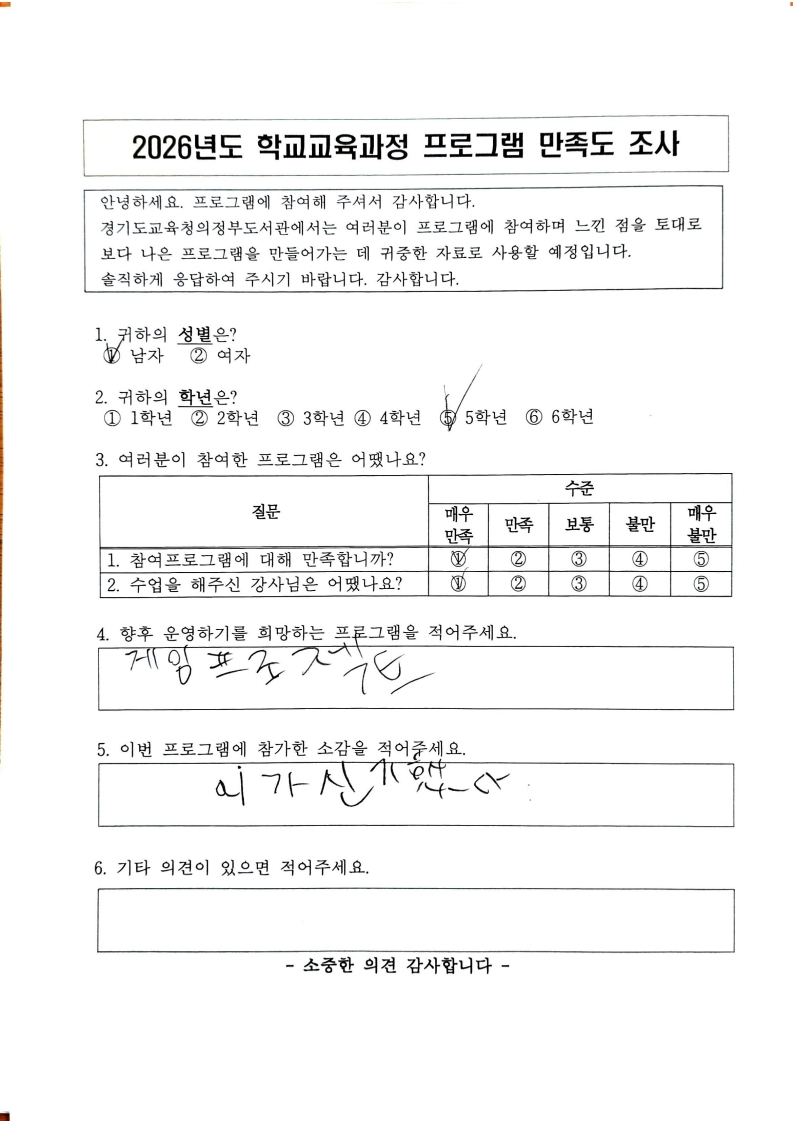 2026년도 학교교육과정 프로그램 만족도 조사
안녕하세요. 프로그램에 참여해 주셔서 감사합니다.
경기도교육청의정부도서관에서는 여러분이 프로그램에 참여하며 느낀 점을 토대로
보다 나은 프로그램을 만들어가는 데 귀중한 자료로 사용할 예정입니다.
솔직하게 응답하여 주시기 바랍니다. 감사합니다.
1. 귀하의 성별은?
① 남자 ② 여자
2. 귀하의 학년은?
① 1학년 ② 2학년 ③ 3학년 ④ 4학년 ⑤ 5학년 ⑥ 6학년
3. 여러분이 참여한 프로그램은 어땠나요?
질문 수준
매우 만족 만족 보통 불만 매우 불만
1. 참여프로그램에 대해 만족합니까? ① ② ③ ④ ⑤
2. 수업을 해주신 강사님은 어땠나요? ① ② ③ ④ ⑤
4. 향후 운영하기를 희망하는 프로그램을 적어주세요.
게임프로젝트
5. 이번 프로그램에 참가한 소감을 적어주세요.
가신기했다
6. 기타 의견이 있으면 적어주세요.
- 소중한 의견 감사합니다 -